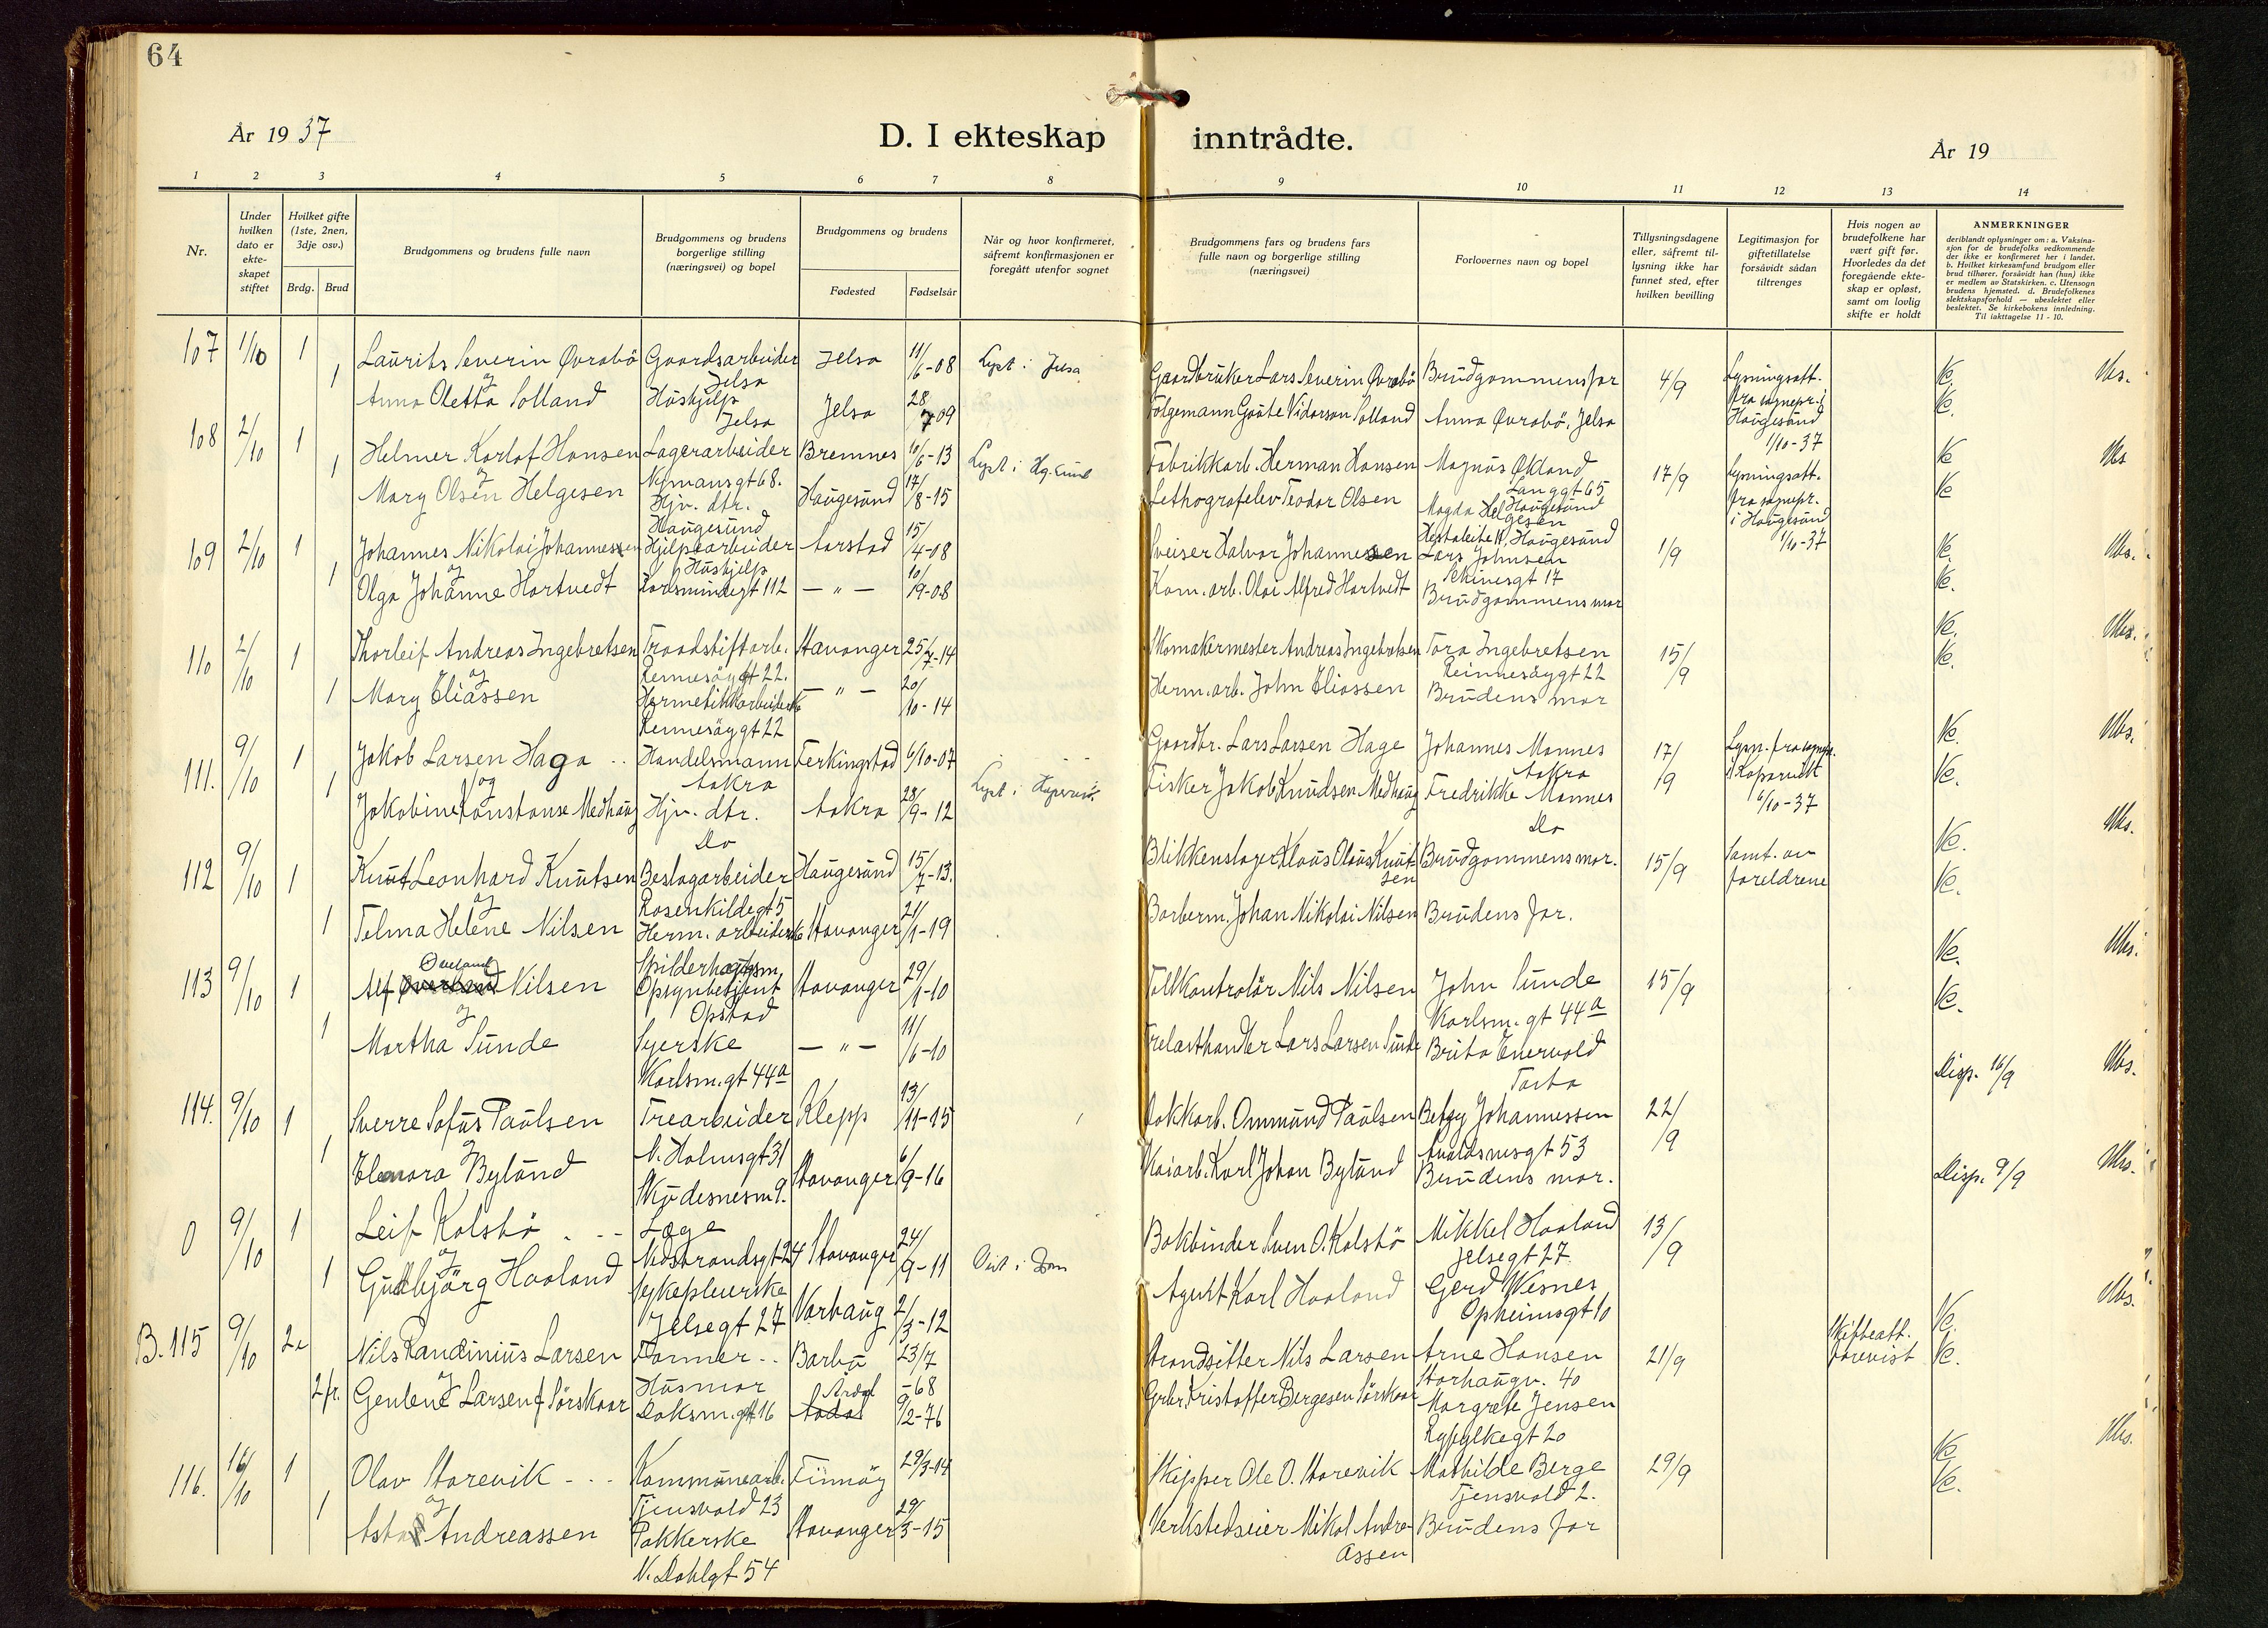 64
År 1937
D. I ekteskap inntrådte.
År 19
1 2 3 4 5 6 7 8 9 10 11 12 13 14
Nr.
Under hvilken dato er ekte-skapet stiftet
Hvilket gifte (1ste, 2nen, 3dje osv.)
Brdg. Brud
Brudgommens og brudens fulle navn
Brudgommens og brudens borgerlige stilling (næringsvei) og bopel
Brudgommens og brudens
Fødested Fødselsår
Når og hvor konfirmeret, såfremt konfirmasjonen er foregått utenfor sognet
Brudgommens fars og brudens fars fulle navn og borgerlige stilling (næringsvei)
Forlovernes navn og bopel
Tillysningsdagene eller, såfremt til-lysning ikke har funnet sted, efter hvilken bevilling
Legitimasjon for giftetillatelse forsåvidt sådan tiltrenges
Hvis nogen av brudefolkene har vært gift før. Hvorledes da det foregående ekte-skap er opløst, samt om lovlig skifte er holdt
ANMERKNINGER
deriblandt oplysninger om: a. Vaksina-sjon for de brudefolks vedkommende der ikke er konfirmeret her i landet. b. Hvilket kirkesamfund brudgom eller brud tilhører, forsåvidt han (hun) ikke er medlem av Statskirken. c. Utensogn brudens hjemsted. d. Brudefolkenes slektskapsforhold — ubeslektet eller beslektet. Se kirkebokens innledning. Til iakttagelse 11 - 10.
107 1/10 1 Laurits Severin Øvrabö Gaardsarbeider Jelsa Jelsa 11/6-08 Lyst i Jelsa Gaardbruker Lars Severin Øvrabö Brudgommens far 4/9 Lysningsatt. fra sognepr. i Haugesund 1/10-37 Ubs.
og
1 Anna Oletta Solland Hushjelp Jelsa Jelsa 28/7 09 Følgemann Gaute Vidarson Solland Anna Øvrabö, Jelsa
108 2/10 1 Helmer Karlof Hansen Lagerarbeider Nymansgt 68. Bremnes 10/6-13 Lyst i Hg.sund Fabrikkarb. Herman Hansen Magnus Økland Langgt 65 Haugesund 17/9 Lysningsatt. fra sognepr. i Haugesund 1/10-37 Ubs
og
1 Mary Olsen Helgesen Hjv. dtr. Haugesund Haugesund 17/8-15 Lethografelev Teodor Olsen Magda Helgesen Haugesund
109 2/10 1 Johannes Nikolai Johannessen Hjelpearbeider Aarstad 15/4-08 Sveiser Halvor Johannessen Lars Johnsen 1/9 Ubs.
og
1 Olga Johanne Hortvedt Hushjelp Karlsmindegt 112 — " — 10/9-08 Kom. arb. Olai Alfred Hortvedt Brudgommens mor
110 2/10 1 Thorleif Andreas Ingebretsen Traadstiftarb. Rennesöygt 22. Stavanger 25/7-14 Skomakermester Andreas Ingebretsen Tora Ingebretsen Rennesöygt 22 15/9 Ubs.
og
1 Mary Eliassen Hermetikkarbeiderske Rennesöygt 22 — " — 20/10-14 Herm. arb. John Eliassen Brudens mor
111. 9/10 1 Jakob Larsen Haga Handelsmann Aakra Ferkingstad 6/10-07 Lyst i Kopervik. Gaardbr. Lars Larsen Hage Johannes Mannes Aakra 17/9 Lysn. fra sognepr. i Kopervik 6/10-37 Ubs.
og
1 Jakobine Konstanse Medhaug Hjv. dtr. Do Aakra 28/9-12 Fisker Jakob Knudsen Medhaug Fredrikke Mannes Do
112 9/10 1 Knut Leonhard Knutsen Beslagarbeider Rosenkildegt 5 Haugesund 15/7-13. Blikkenslager Klaus Olaus Knutsen Brudgommens mor. 15/9 Samt. av foreldrene Ubs.
og
1 Telma Helene Nilsen Herm. arbeiderske Stavanger 21/1-19 Barberm. Johan Nikolai Nilsen Brudens far.
113 9/10 1 Alf Øveland Nilsen Opsynbetjent Opstad Stavanger 29/1-10 Tollkontrolör Nils Nilsen John Sunde Karlsm. gt 44a 15/9 Ubs.
og
1 Martha Sunde Syerske Karlsm. gt 44a — " — 11/6-10 Trelasthandler Lars Larsen Sunde Brita Enervold Tasta
114. 9/10 1 Sverre Sofus Paulsen Trearbeider N. Holmegt 31 Klepp 13/11-15 Dokkarb. Ommund Paulsen Betzy Johannessen Avaldsnesgt 53 22/9 Disp. 16/9 Ubs.
og
1 Elenora Byland Skudesnesm 9. Stavanger 6/9-16 Kaiarb. Karl Johan Byland Brudens mor.
0 9/10 1 Leif Kolstö Læge Nedstrandsgt 24 Stavanger 24/9-11 Viet i Dom Bokbinder Sven O. Kolstö Mikkel Haaland Jelsegt 27 13/9 Disp. 9/9 Ubs.
og
1 Gudbjörg Haaland Sykepleierske Jelsegt 27 Varhaug 2/3-12 Agent Karl Haaland Gerd Wesnes Opheimsgt 10
B. 115 9/10 2e Nils Randinius Larsen Farmer Barbu 23/7-68 Strandsitter Nils Larsen Arne Hansen Storhaugv. 40 21/9 Skifteatt. forevist Ubs.
og
2 fr. Gentene Larsen f Sörskaar Husmor Doksm. gt 16 Årdal 9/2-76 Grbr. Kristoffer Bergesen Sörskaar Margrete Jensen Ryfylkegt 20
116. 16/10 1 Olav Storevik Kommunearb. Tjensvold 23 Finnöy 29/3-14 Skipper Ole O. Storevik Mathilde Berge Tjensvold 2. 29/9 Ubs.
og
1 Andreassen Pakkerske V. Dahlgt 54 Stavanger 29/3-15 Verkstedseier Mikal Andreassen Brudens far